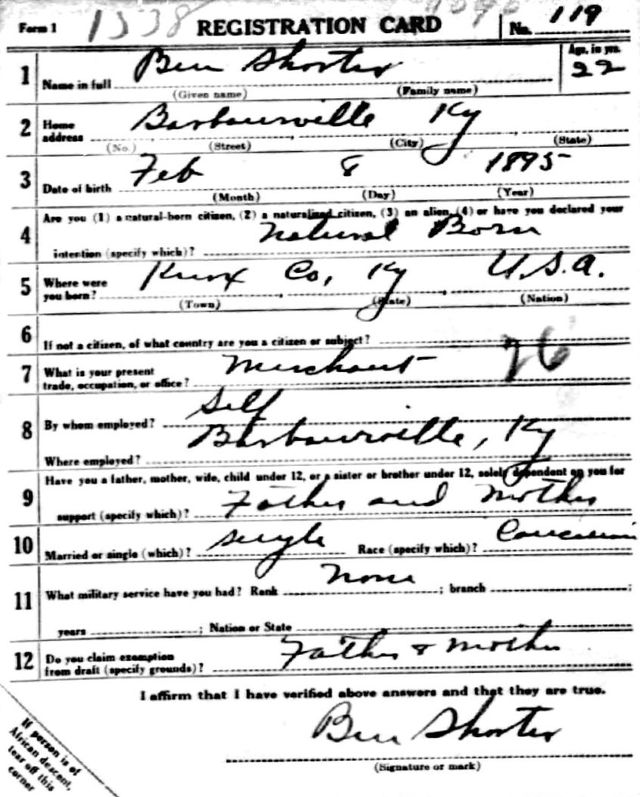 Form 1 1538 REGISTRATION CARD No. 119
1 Name in full Ben Shorter Age, in yrs. 22
(Given name) (Family name)
2 Home address Barbourville Ky
(No.) (Street) (City) (State)
3 Date of birth Feb 8 1895
(Month) (Day) (Year)
4 Are you (1) a natural-born citizen, (2) a naturalized citizen, (3) an alien, (4) or have you declared your
intention (specify which)? Natural Born
5 Where were you born? Knox Co, Ky U.S.A.
(Town) (State) (Nation)
6 If not a citizen, of what country are you a citizen or subject?
7 What is your present trade, occupation, or office? Merchant 26
8 By whom employed? Self
Where employed? Barbourville, Ky
9 Have you a father, mother, wife, child under 12, or a sister or brother under 12, solely dependent on you for
support (specify which)? Father and Mother
10 Married or single (which)? Single Race (specify which)? Caucasian
11 What military service have you had? Rank None ; branch ;
years ; Nation or State
12 Do you claim exemption from draft (specify grounds)? Father & Mother
I affirm that I have verified above answers and that they are true.
Ben Shorter
(Signature or mark)
If person is of
African descent,
tear off this
corner